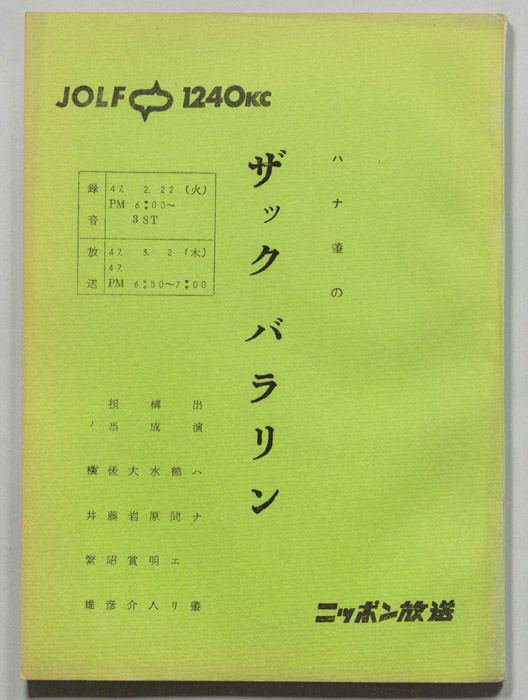 JOLF 1240KC
ハナ肇の
ザックバラリン
録音
47. 2. 22 (火)
PM 6:00〜
3 ST
放送
47. 3. 2 (木)
47.
PM 6:50〜7:00
出演 ハナ肇
鶴間エリ
構成 水原明人
大岩賞介
担当 後藤昭彦
井繁雄
ニッポン放送